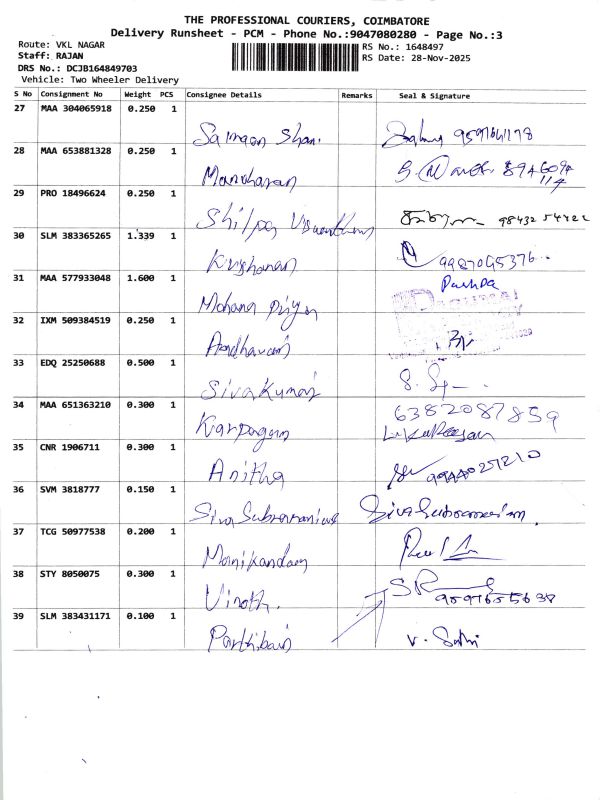 THE PROFESSIONAL COURIERS, COIMBATORE
Delivery Runsheet - PCM - Phone No.:9047080280 - Page No.:3
Route: VKL NAGAR
Staff: RAJAN
DRS No.: DCJB164849703
Vehicle: Two Wheeler Delivery
RS No.: 1648497
RS Date: 28-Nov-2025
S No Consignment No Weight PCS Consignee Details Remarks Seal & Signature
27 MAA 304065918 0.250 1
28 MAA 653881328 0.250 1 Manoharan
29 PRO 18496624 0.250 1 Shilpa
30 SLM 383365265 1.339 1 Krishanan
31 MAA 577933048 1.600 1 Mohana Priya Pushpa
32 IXM 509384519 0.250 1 Aadhavan
33 EDQ 25250688 0.500 1 SivaKumar
34 MAA 651363210 0.300 1 Karpagam 6382087859
35 CNR 1906711 0.300 1 Anitha 9944025210
36 SVM 3818777 0.150 1 Siva Subramaniam Sivasubramaniam.
37 TCG 50977538 0.200 1 Manikandan
38 STY 8050075 0.300 1 Vinoth.
39 SLM 383431171 0.100 1 Parthiban